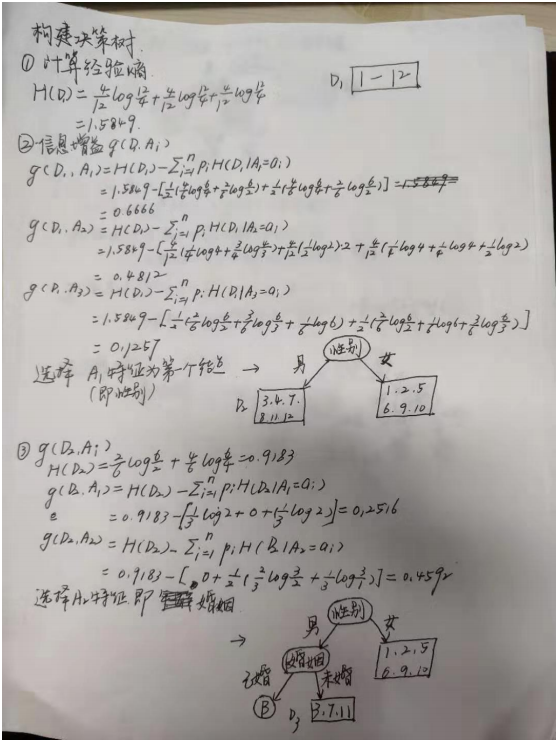 构建决策树.
① 计算经验熵
D₁ 1 — 12
H(D) = 4/12 log 12/4 + 4/12 log 12/4 + 4/12 log 12/4
= 1.5849.
② 信息增益 g(D, Aᵢ)
g(D₁, A₁) = H(D₁) - Σⁿᵢ₌₁ pᵢ H(D₁|A₁=aᵢ)
= 1.5849 - [1/2(4/6 log 6/4 + 2/6 log 6/2) + 1/2(4/6 log 6/4 + 2/6 log 6/2)]
= 0.6666
g(D₁, A₂) = H(D₁) - Σⁿᵢ₌₁ pᵢ H(D₁|A₂=aᵢ)
= 1.5849 - [4/12(1/4 log4 + 3/4 log 4/3) + 4/12(1/2 log2)·2 + 4/12(1/4 log4 + 1/4 log4 + 1/2 log2)
= 0.4812
g(D₁, A₃) = H(D₁) - Σⁿᵢ₌₁ pᵢ H(D₁|A₃=aᵢ)
= 1.5849 - [1/2(2/6 log 6/2 + 3/6 log 6/3 + 1/6 log6) + 1/2(2/6 log 6/2 + 1/6 log6 + 3/6 log 6/3)]
= 0.1257
选择 A₁特征为第一个结点
(即性别)
→
性别
男 女
D₂ 3.4.7.
8.11.12
1.2.5
6.9.10
③ g(D₂, Aᵢ)
H(D₂) = 2/6 log 6/2 + 4/6 log 6/4 = 0.9183
g(D₂, A₁) = H(D₂) - Σⁿᵢ₌₁ pᵢ H(D₂|A₁=aᵢ)
= 0.9183 - [1/3 log2 + 0 + (1/3 log2)] = 0.2516
g(D₂, A₂) = H(D₂) - Σⁿᵢ₌₁ pᵢ H(D₂|A₂=aᵢ)
= 0.9183 - [0 + 1/2(2/3 log 3/2 + 1/3 log 3/1)] = 0.4592
选择A₂特征即 婚姻
→
性别
男 女
婚姻
1.2.5
6.9.10
已婚 未婚
B
D₃ 3.7.11